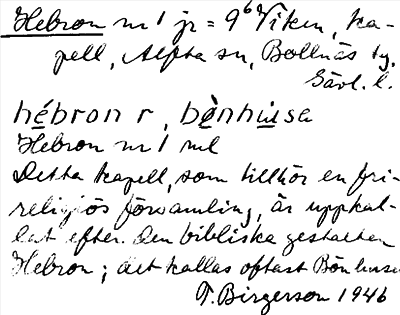 Hebron nr 1 jr = 9⁶ Viken, ka-
pell, Alpha sn, Bollnäs tg,
Gävl. l.
hébron r, bö̀nhùsa
Hebron nr 1 ml
Detta kapell, som tillhör en fri-
religiös församling, är uppkal-
lat efter. Den bibliska gestalten
Hebron; det kallas oftast Bönhuset
T. Birgerson 1946